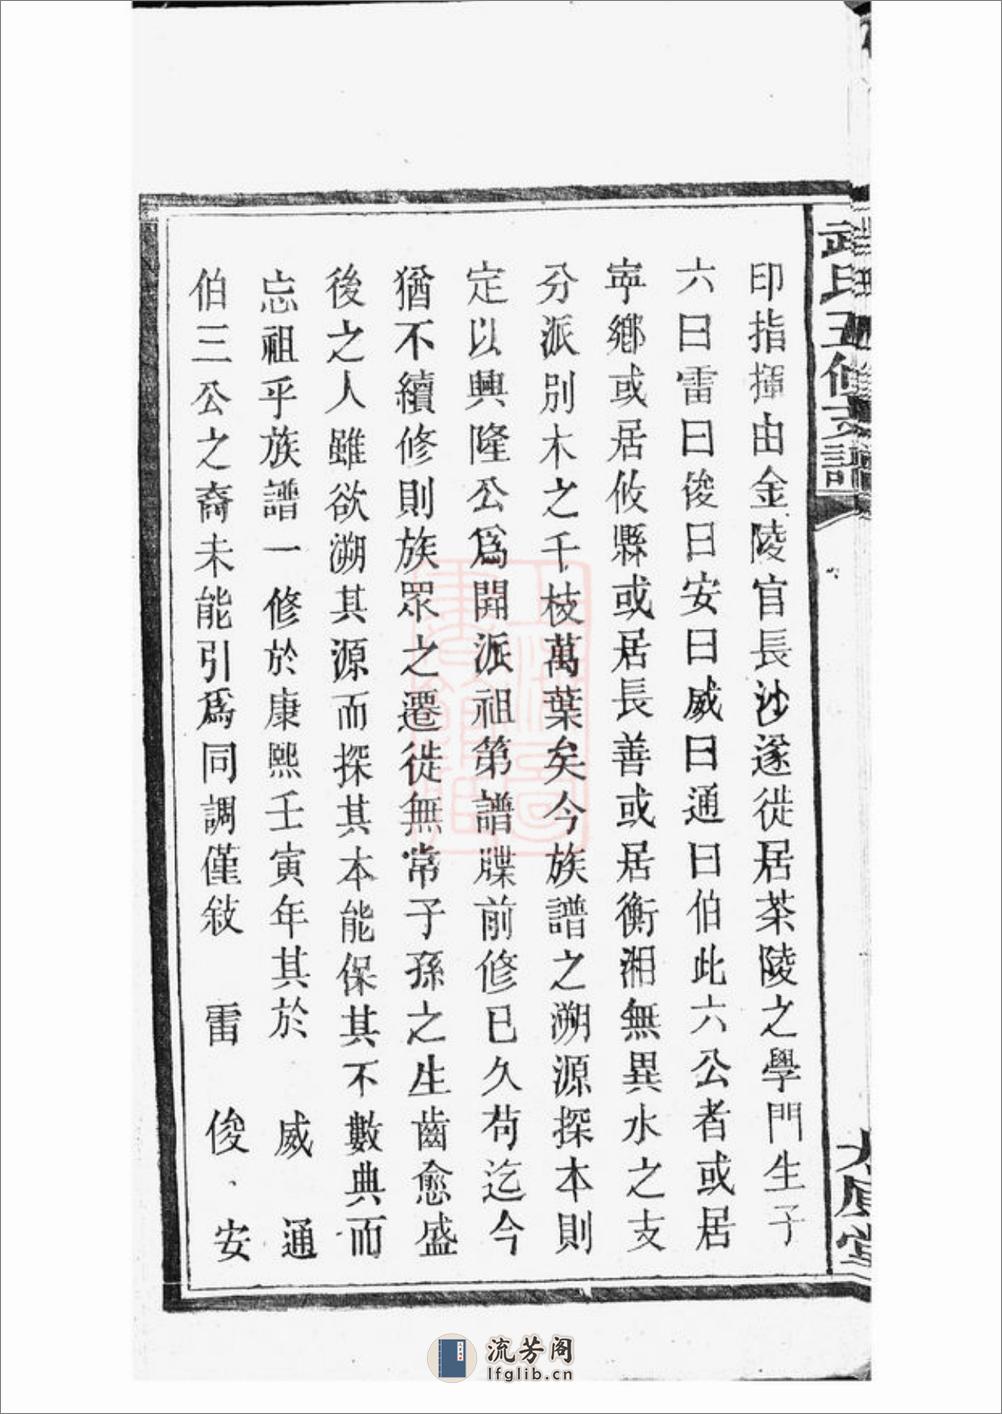 印指揮由金陵官長沙遂徙居茶陵之學門生子
六曰雷曰俊曰安曰威曰通曰伯此六公者或居
寧鄉或居攸縣或居長善或居衡湘無異水之支
分派別木之千枝萬葉矣今族譜之溯源探本則
定以興隆公為開派祖第譜牒前修已久苟迄今
猶不續修則族眾之遷徙無常子孫之生齒愈盛
後之人雖欲溯其源而探其本能保其不數典而
忘祖乎族譜一修於康熙壬寅年其於 威 通
伯三公之裔未能引為同調僅敍 雷 俊、安
流芳阁
lfglib.cn